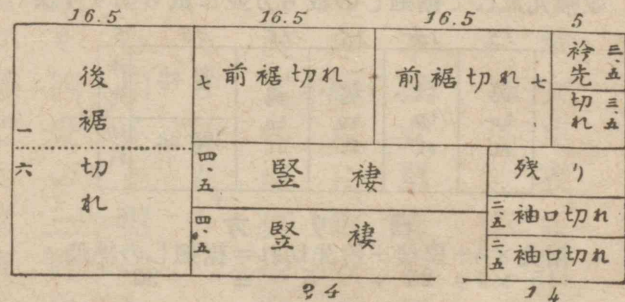 16.5 16.5 16.5 5
後裾切れ
一六
七 前裾切れ
前裾切れ 七
衿先切れ
三、五
三、五
四、五 竪褄
残り
四、五 竪褄
二、五 袖口切れ
二、五 袖口切れ
24 14